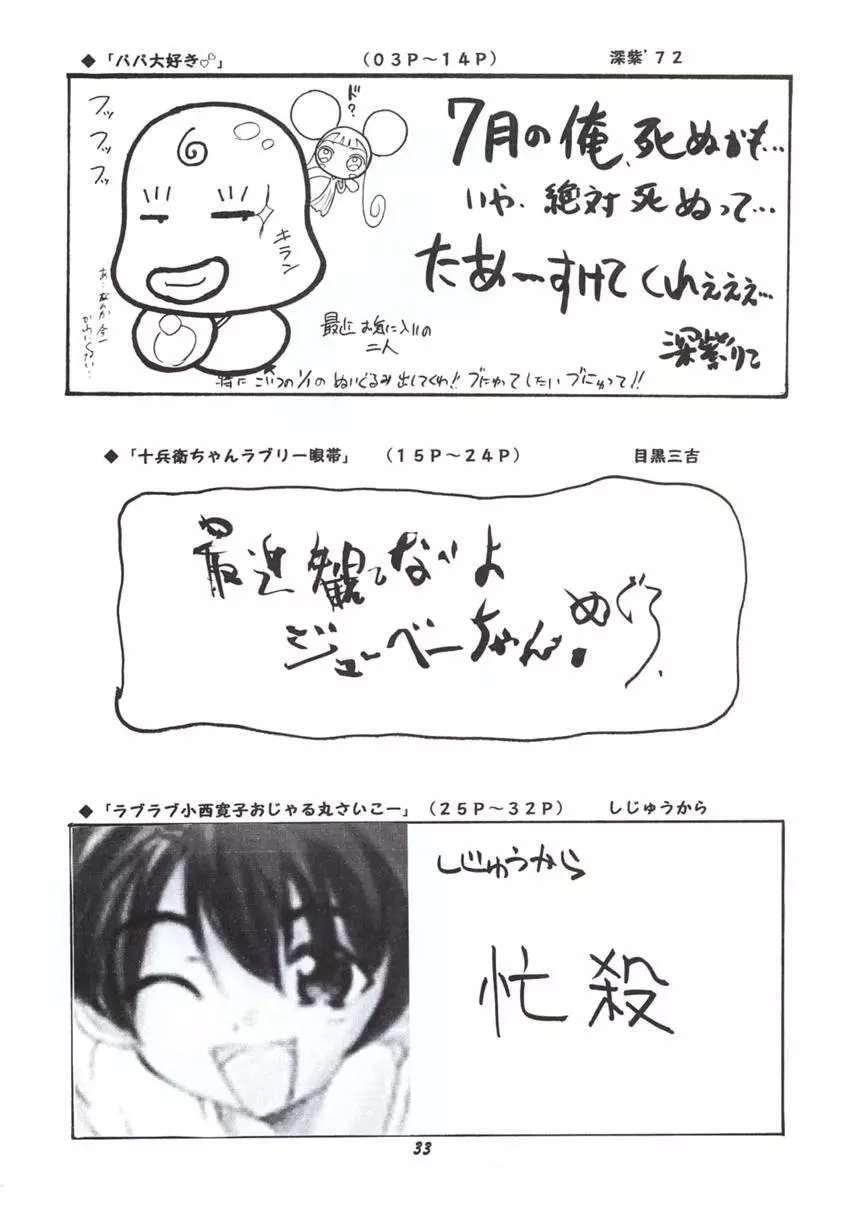 ◆「パパ大好き♡」 (03P～14P) 深紫'72
フッ
フッ
フッ
ド?
キラン
7月の俺、死ぬかも…
いや、絶対死ぬって…
たあーすけてくれぇぇぇ…
深紫りこ
最近お気に入りの
二人
特にこいつの1/1のぬいぐるみ出してくれ!!プにゅってしたいプにゅって!!
◆「十兵衛ちゃんラブリー眼帯」 (15P～24P) 目黒三吉
最近観てないよ
ジューベーちゃん。めぐろ
◆「ラブラブ小西寛子おじゃる丸さいこー」 (25P～32P) しじゅうから
しじゅうから
忙殺
33